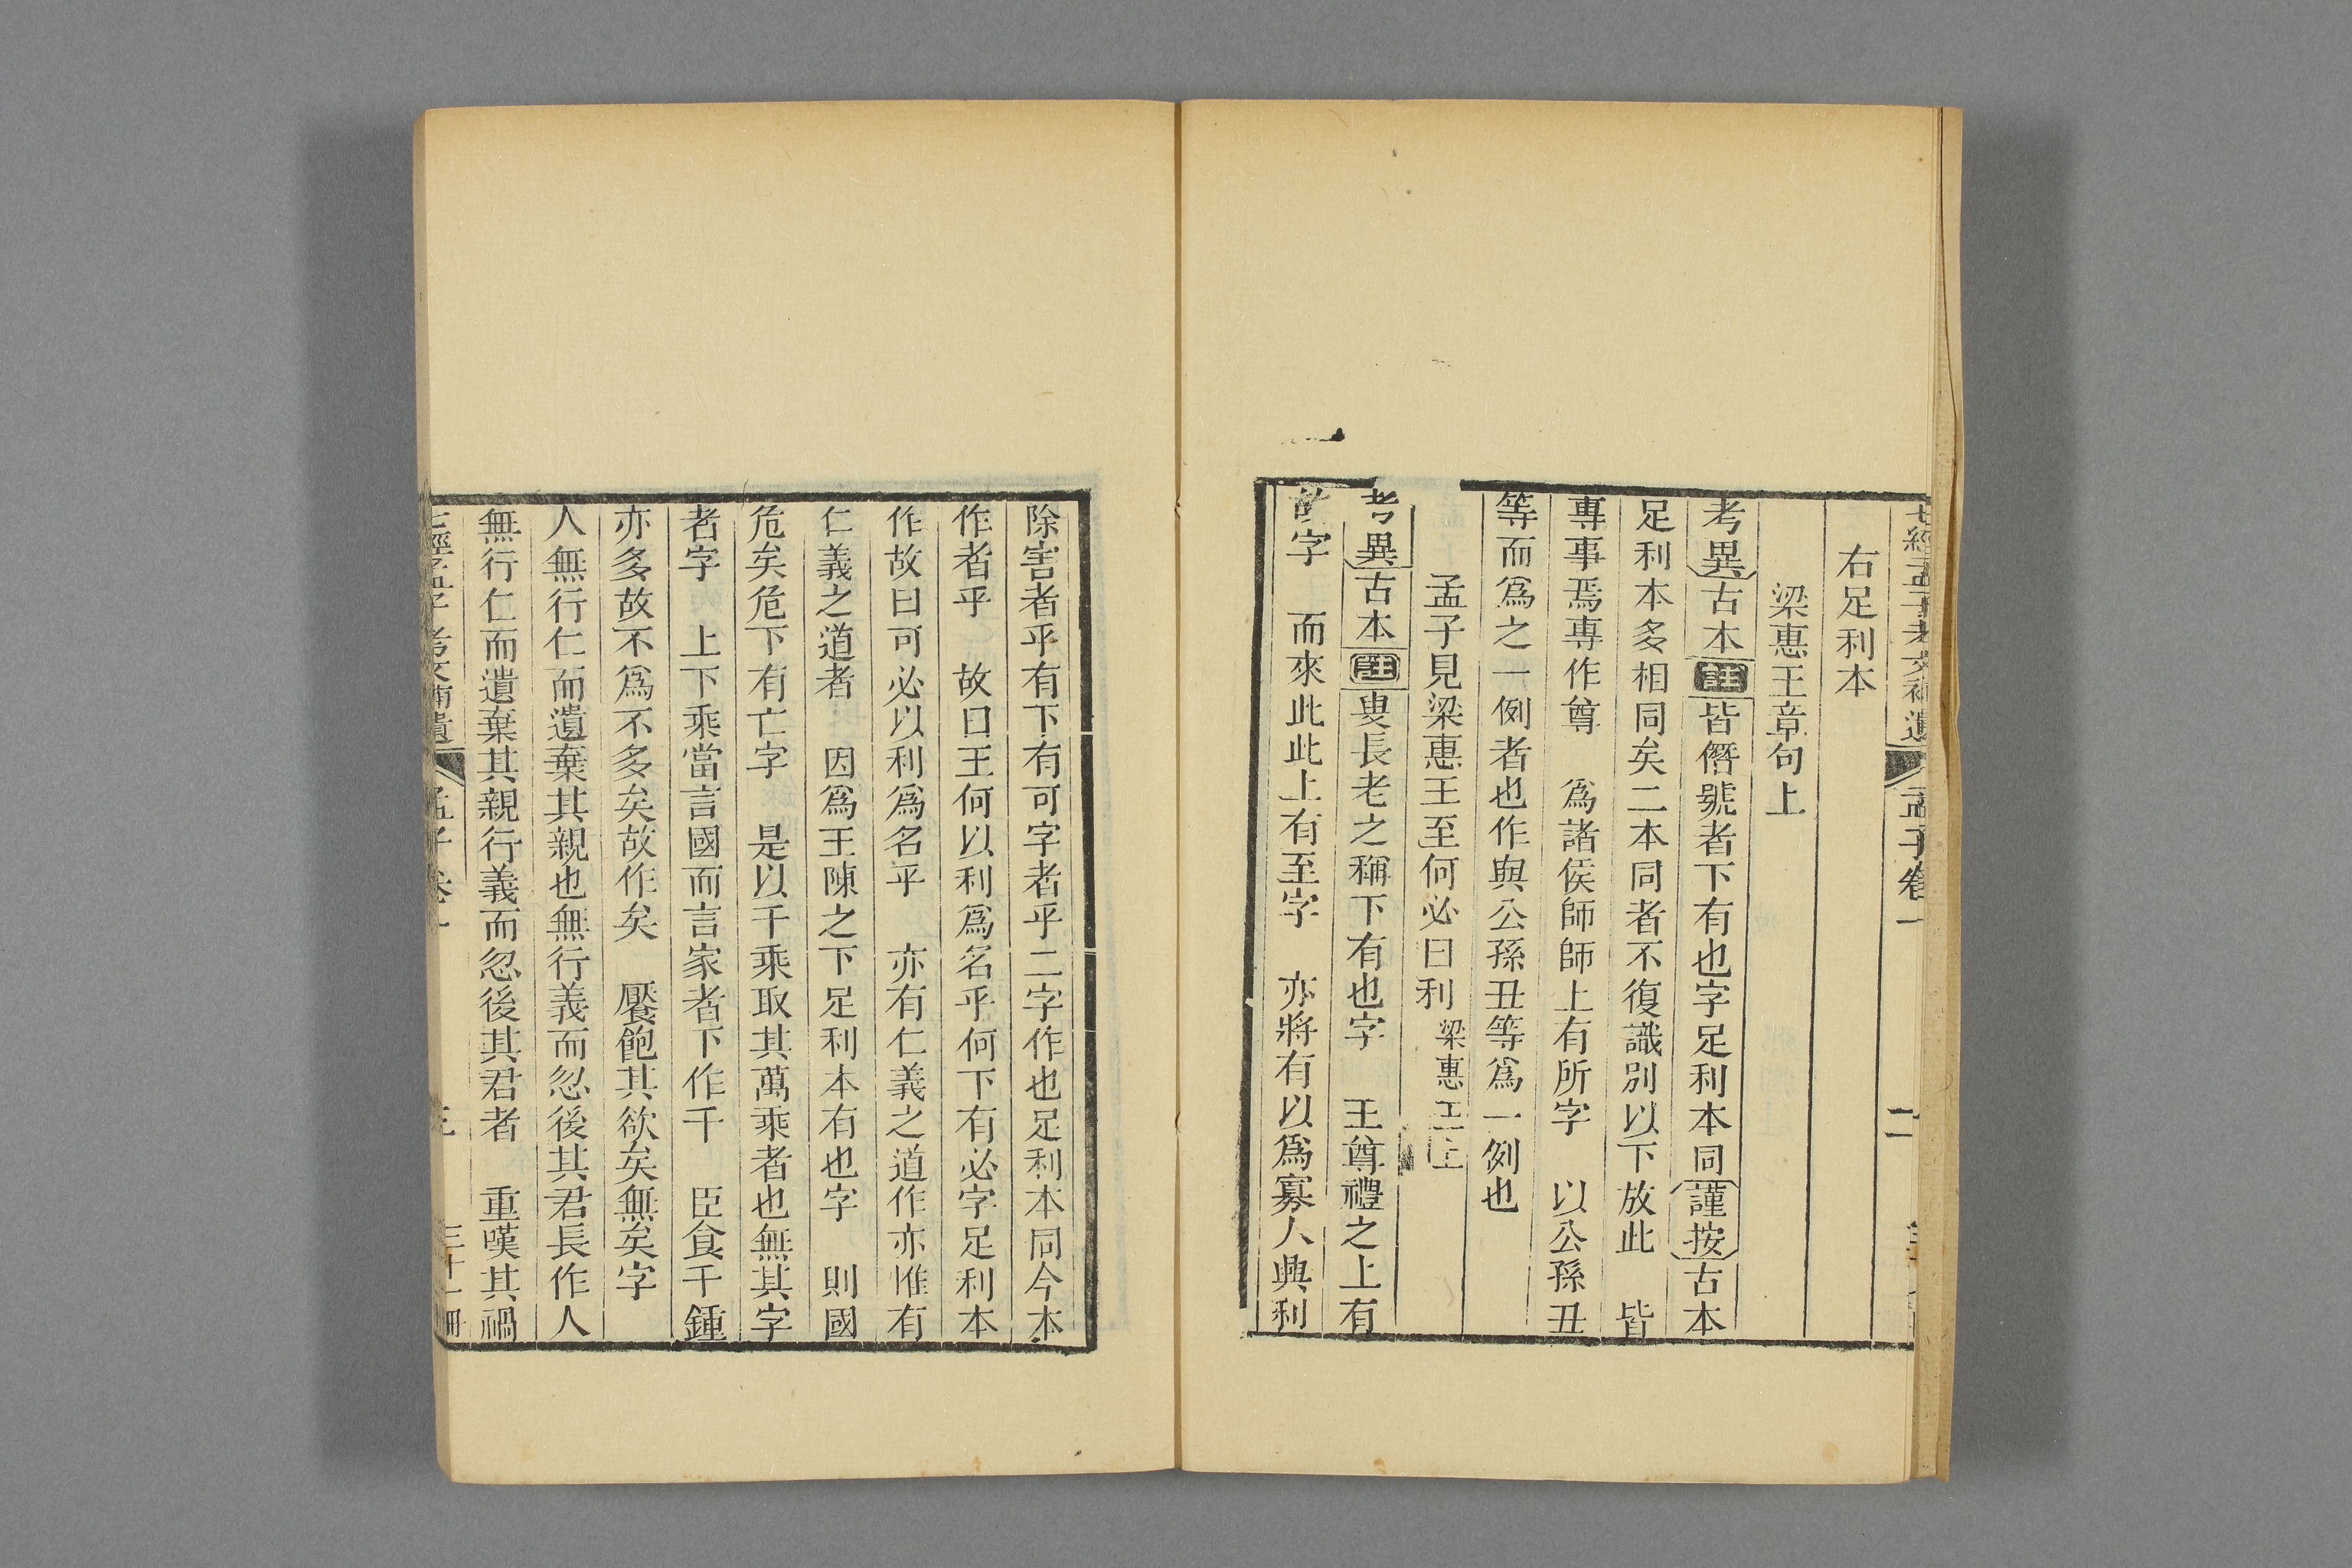 七經孟子考文補遺 孟子卷一 二
右足利本
梁惠王章句上
考異古本註皆僭號者下有也字足利本同謹按古本
足利本多相同矣二本同者不復識別以下放此　皆
專事焉專作尊　爲諸侯師師上有所字　以公孫丑
等而爲之一例者也作與公孫丑等爲一例也
孟子見梁惠王至何必曰利梁惠王上
考異古本註叟長老之稱下有也字　王尊禮之上有
故字　而來此此上有至字　亦將有以爲寡人興利
除害者乎有下有可字者乎二字作也足利本同今本
作者乎　故曰王何以利爲名乎何下有必字足利本
作故曰可必以利爲名乎　亦有仁義之道作亦惟有
仁義之道者　因爲王陳之下足利本有也字　則國
危矣危下有亡字　是以千乘取其萬乘者也無其字
者字　上下乘當言國而言家者下作千　臣食千鍾
亦多故不爲不多矣故作矣　饜飽其欲矣無矣字
人無行仁而遺棄其親也無行義而忽後其君長作人
無行仁而遺棄其親行義而忽後其君者　重嘆其禍
七經孟子考文補遺 孟子卷一 三十一冊